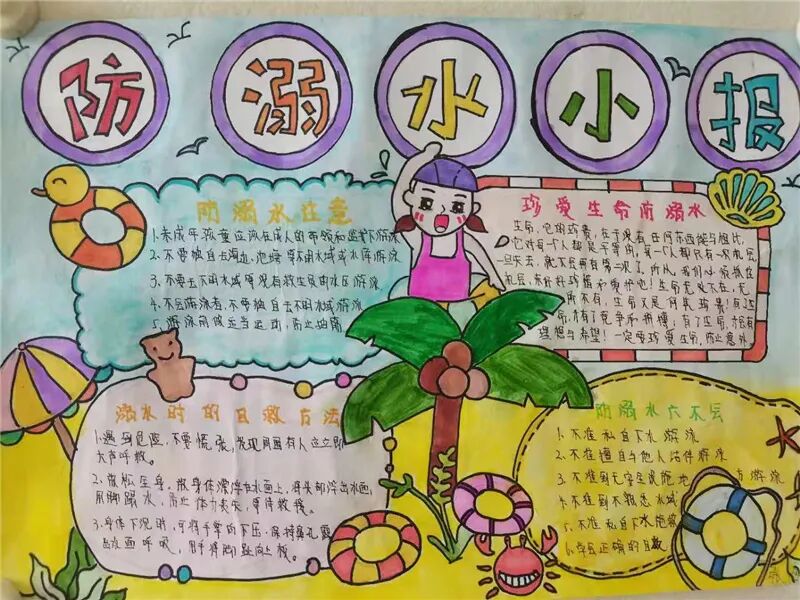 防溺水小报
防溺水注意
1.未成年孩童应该在成人的带领和监护下游泳
2.不要独自去海边、池塘等不明水域或水库游泳
3.不要去不明水域等没有救生员的水区游泳
4.不会游泳者,不要独自去不明水域游泳
5.游泳前做适当运动,防止抽筋
珍爱生命防溺水
生命,它很珍贵,在于没有任何东西能与相比,
它对每一个人都是平等的,每一个人都只有一次机会
一旦失去,就不会再有第二次了,所以,我们必须抓住
机会,来好好珍惜和爱惜他!生命无处不在,无
所不有,生命又是何其珍贵!有了生
命,有了竞争和拼搏;有了生命,才有
理想与希望!一定要珍爱生命,防止意外
溺水时的自救方法
1.遇到危险,不要慌张,发现周围有人应立即
大声呼救。
2.放松全身,让身体漂浮在水面上,将头部浮出水面,
用脚踢水,防止体力丧失,等待救援。
3.身体下沉时,可将手掌向下压,保持鼻孔露
出水面呼吸,用手将脚趾向上扳。
防溺水六不会
1.不准私自下水游泳
2.不在擅自与他人结伴游泳
3.不准到无安全设施地 方游泳
4.不准到不熟悉水域
5.不准私自下水施救
6.学会正确的自救